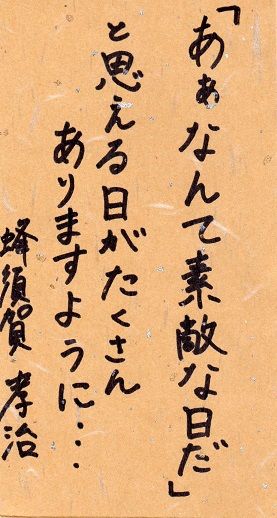 「あぁなんて素敵な日だ」
と思える日がたくさん
ありますように・・・
蜂須賀 孝治